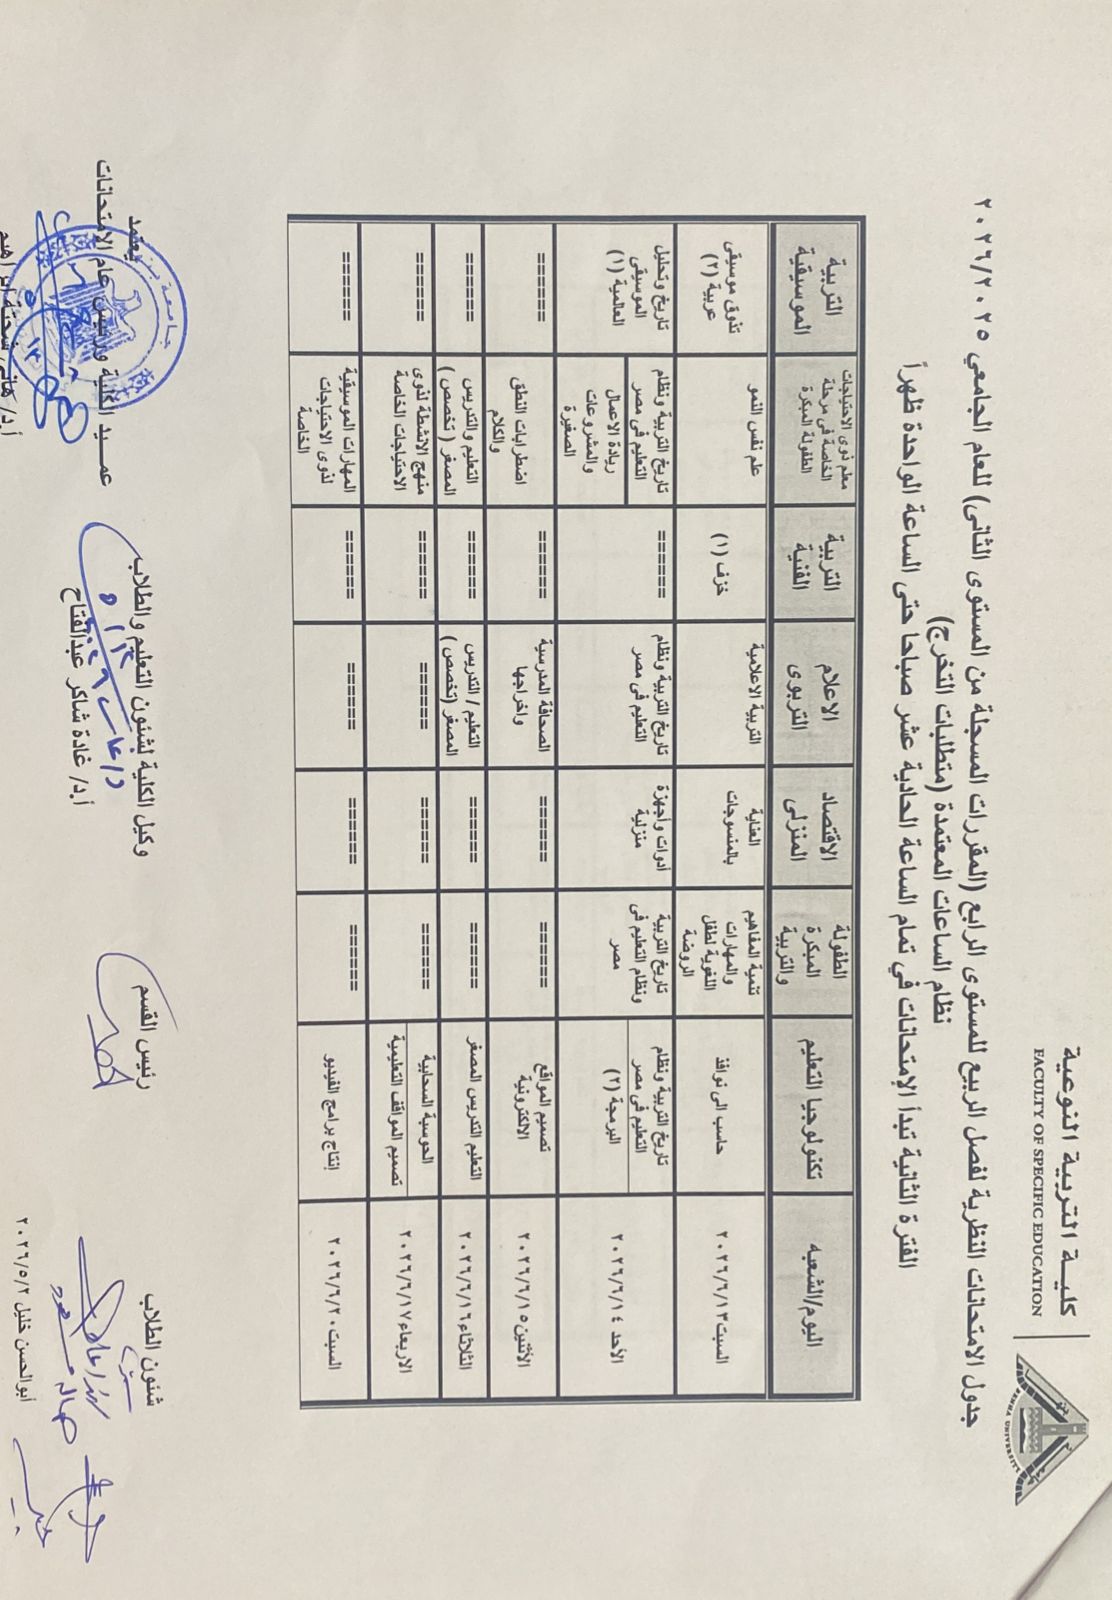 كلية التربية النوعية
FACULTY OF SPECIFIC EDUCATION
BENHA UNIVERSITY
جدول الامتحانات النظرية لفصل الربيع للمستوى الرابع (المقررات المسجلة من المستوى الثانى) للعام الجامعي ٢٠٢٦/٢٠٢٥
نظام الساعات المعتمدة (متطلبات التخرج)
الفترة الثانية تبدأ الإمتحانات في تمام الساعة الحادية عشر صباحا حتى الساعة الواحدة ظهراً
اليوم/الشعبه
تكنولوجيا التعليم
الطفولة
المبكرة
والتربية
الاقتصاد
المنزلى
الاعلام
التربوى
التربية
الفنية
معلم ذوى الاحتياجات
الخاصة فى مرحلة
الطفولة المبكرة
التربية
الموسيقية
السبت ٢٠٢٦/٦/١٣
حاسب الى نوافذ
تنمية المفاهيم
والمهارات
اللغوية لطفل
الروضة
العناية
بالمنسوجات
التربية الاعلامية
خزف (١)
علم نفس النمو
تذوق موسيقى
عربية (٢)
الأحد ٢٠٢٦/٦/١٤
تاريخ التربية ونظام
التعليم فى مصر
البرمجة (٢)
تاريخ التربية
ونظام التعليم فى
مصر
أدوات وأجهزة
منزلية
تاريخ التربية ونظام
التعليم فى مصر
======
تاريخ التربية ونظام
التعليم فى مصر
ريادة الاعمال
والمشروعات
الصغيرة
تاريخ وتحليل
الموسيقى
العالمية (١)
الأثنين ٢٠٢٦/٦/١٥
تصميم المواقع
الالكترونية
======
======
الصحافة المدرسية
واخراجها
======
اضطرابات النطق
والكلام
======
الثلاثاء ٢٠٢٦/٦/١٦
التعليم التدريس المصغر
======
======
التعليم / التدريس
المصغر (تخصص)
======
التعليم والتدريس
المصغر (تخصص)
======
الاربعاء ٢٠٢٦/٦/١٧
الحوسبة السحابية
تصميم المواقف التعليمية
======
======
======
======
منهج الانشطة لذوى
الاحتياجات الخاصة
======
السبت ٢٠٢٦/٦/٢٠
إنتاج برامج الفيديو
======
======
======
======
المهارات الموسيقية
لذوى الاحتياجات
الخاصة
======
شئون الطلاب
أبوالحسن خليل ٢٠٢٦/٥/٢
رئيس القسم
وكيل الكلية لشئون التعليم والطلاب
أ.د/ غادة شاكر عبدالفتاح
يعتمد
عميد الكلية ورئيس عام الامتحانات
أ.د/ هانى شحتة ابراهيم